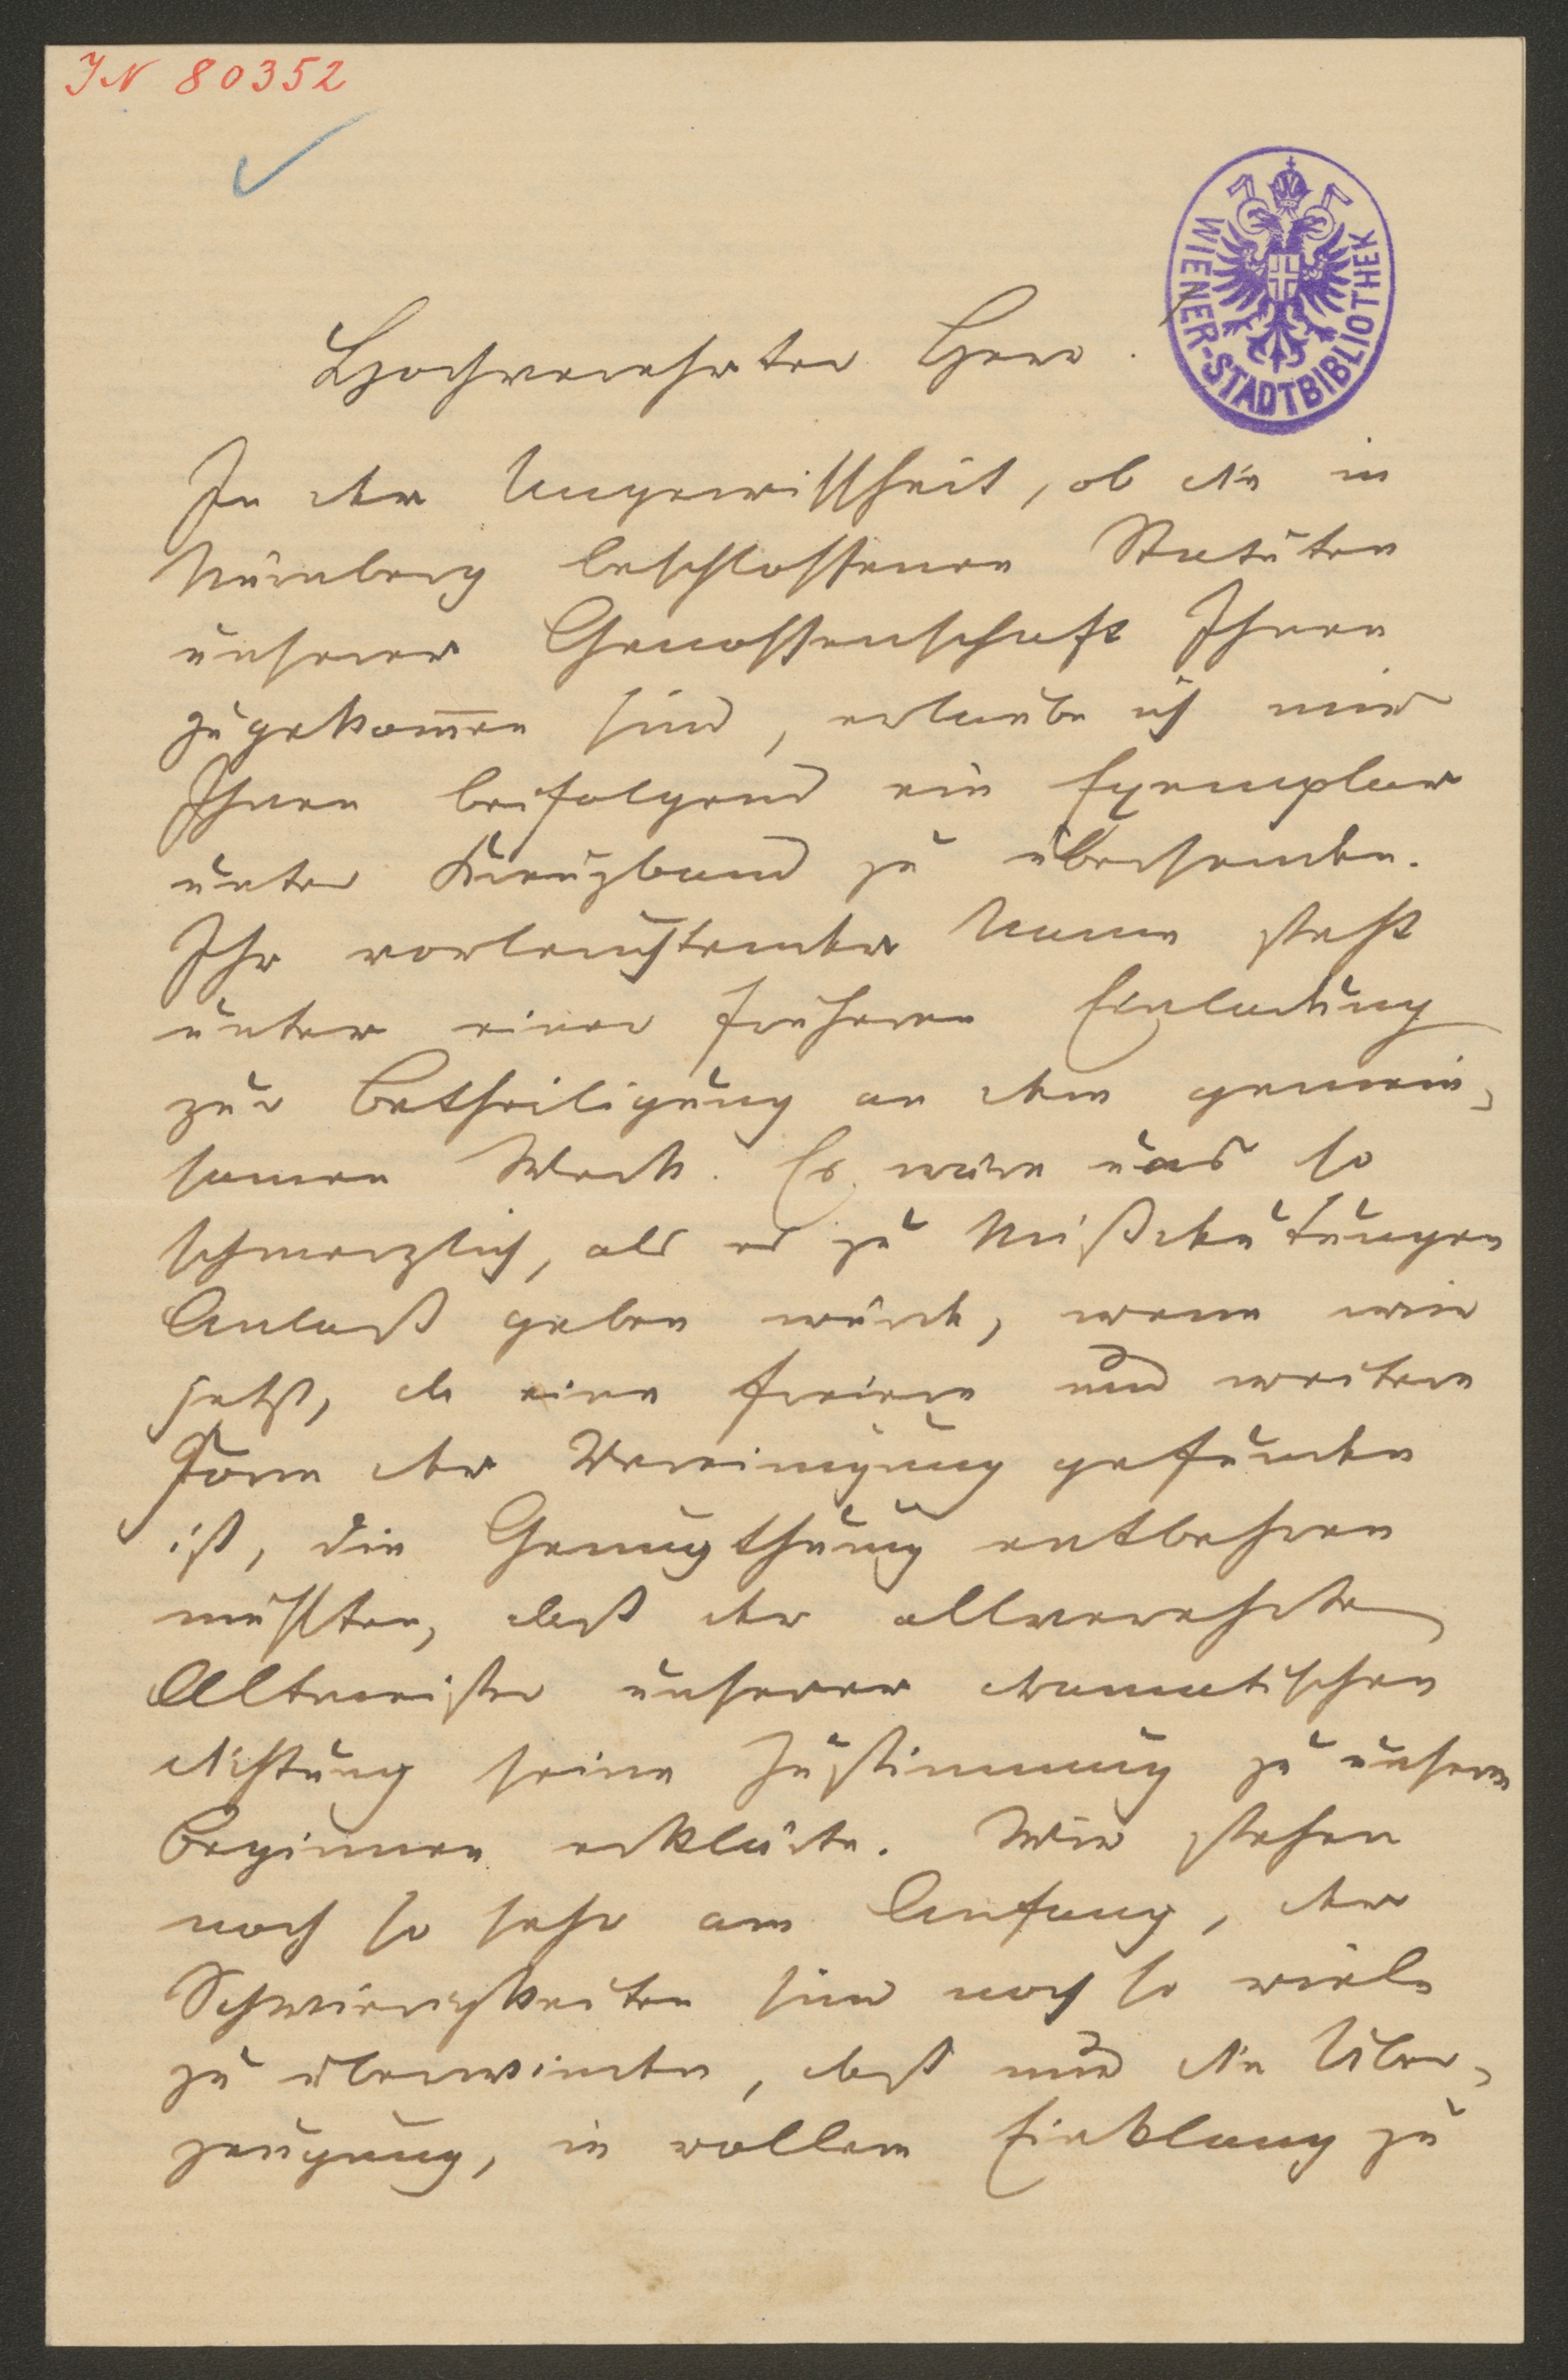 IN 80352
WIENER-STADTBIBLIOTHEK
Hochverehrter Herr.
In der Ungewissheit, ob die in
Nürnberg beschlossenen Statuten
unserer Genossenschaft Ihnen
zugekom̅en sind, erlaube ich mir
Ihnen beifolgend ein Exemplar
unter Kreuzband zu übersenden.
Ihr vorleuchtender Name steht
unter einer früheren Einladung
zur Betheiligung an dem gemein-
samen Werk. Es wäre uns so
schmerzlich, als es zu Mißdeutungen
Anlaß geben würde, wenn wir
jetzt, da eine freiere und weitere
Form der Vereinigung gefunden
ist, die Genugthuung entbehren
müssten, daß der allverehrte
Altmeister unserer dramatischen
Dichtung seine Zustimmung zu unserem
Beginnen erklärte. Wir stehen
noch so sehr am Anfang, der
Schwierigkeiten sind noch so viele
zu überwinden, daß nur die Über-
zeugung, in vollem Einklang zu